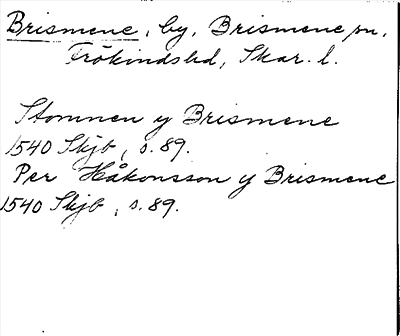 Brismene, by, Brismene sn,
Frökindshd, Skar. l.
Stommen y Brismene
1540 Skjb, s. 89.
Per Håkonsson y Brismene
1540 Skjb, s. 89.